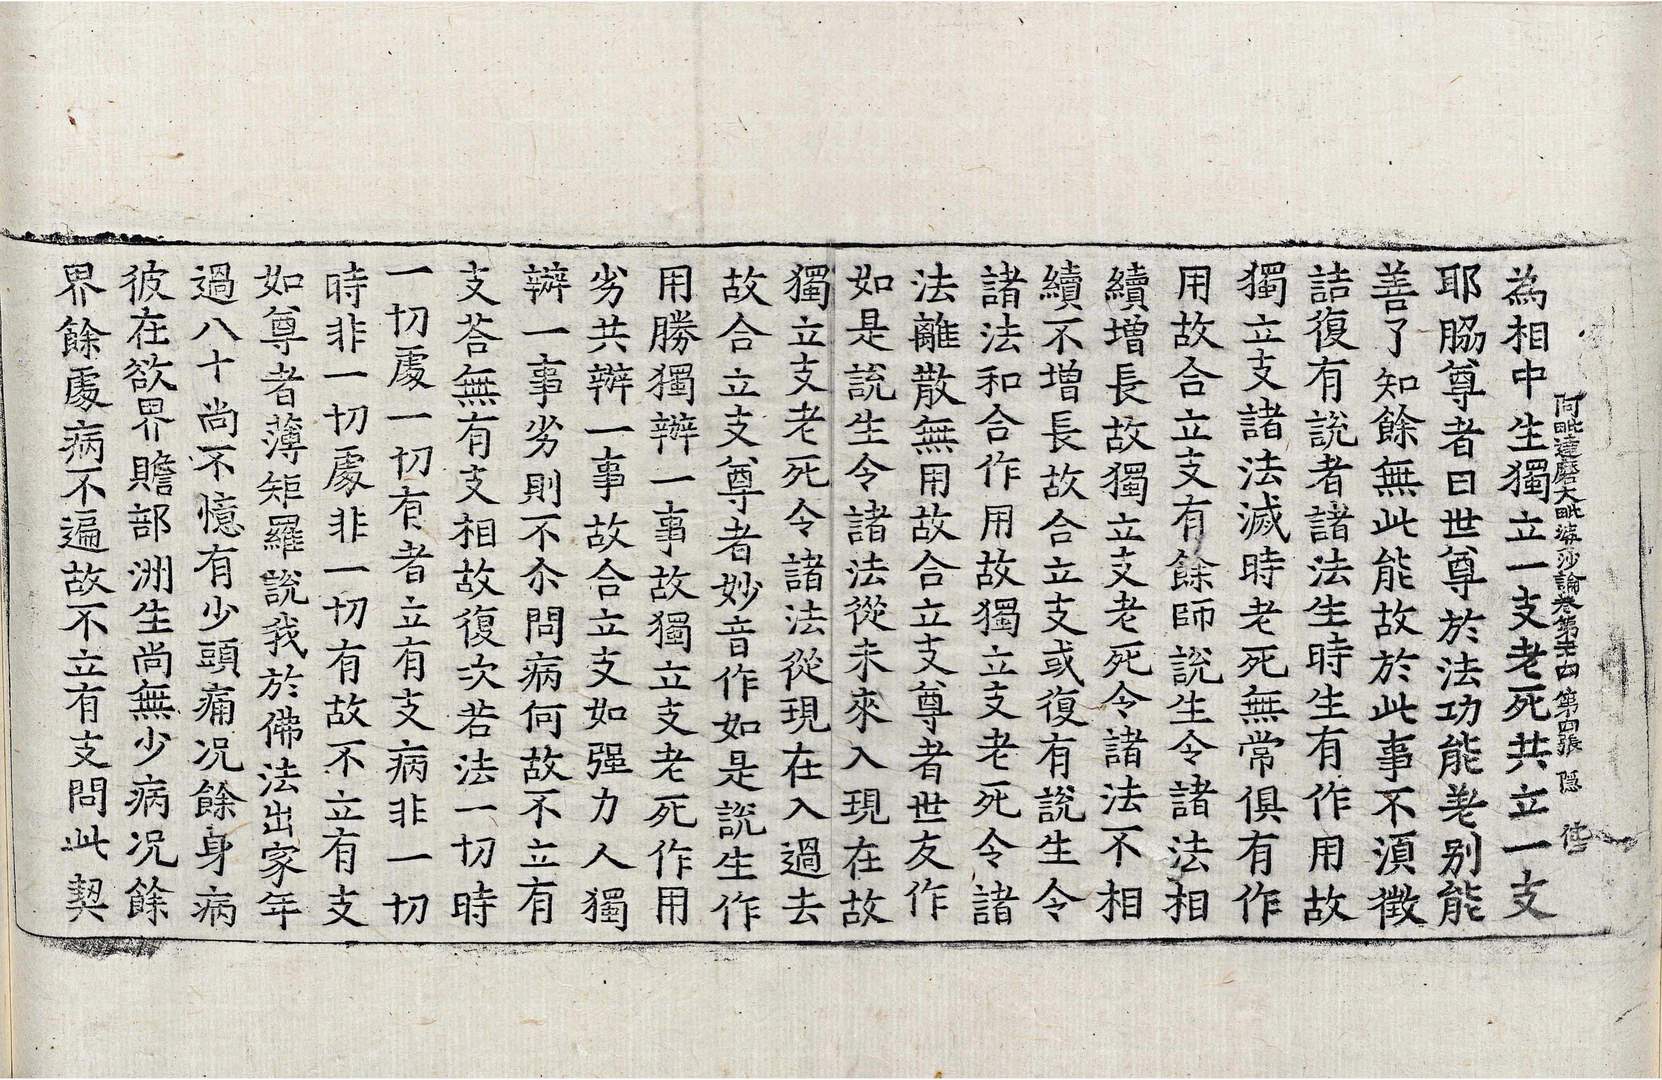 阿毗達磨大毗婆沙論卷第二十四 第四張 隱
為相中生獨立一支老死共立一支
耶脇尊者曰世尊於法功能差别能
善了知餘無此能故於此事不湏徵
詰復有說者諸法生時生有作用故
獨立支諸法滅時老死無常俱有作
用故合立支有餘師說生令諸法相
續增長故獨立支老死令諸法不相
續不增長故合立支或復有說生令
諸法和合作用故獨立支老死令諸
法離散無用故合立支尊者世友作
如是說生令諸法從未來入現在故
獨立支老死令諸法從現在入過去
故合立支尊者妙音作如是說生作
用勝獨辦一事故獨立支老死作用
劣共辦一事故合立支如强力人獨
辦一事劣則不尒問病何故不立有
支荅無有支相故復次若法一切時
一切處一切有者立有支病非一切
時非一切處非一切有故不立有支
如尊者薄矩羅說我於佛法出家年
過八十尚不憶有少頭痛况餘身病
彼在欲界贍部洲生尚無少病况餘
界餘處病不遍故不立有支問此契